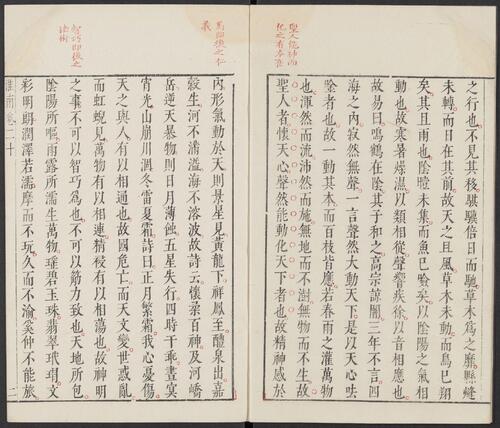 聖人能神而
化之有本
之行也不見其移騏驥倍日而馳草木為之靡縣熢
未轉而日在其前故天之且風草木未動而鳥已翔
矣其且雨也陰曀未集而魚已噞矣以陰陽之氣相
動也故寒暑燥濕以類相從聲響疾徐以音相應也
故易曰鳴鶴在陰其子和之高宗諒闇三年不言四
海之內寂然無聲一言聲然大動天下是以天心呿
唫者也故一動其本而百枝皆應若春雨之灌萬物
也渾然而流沛然而施無地而不澍無物而不生故
聖人者懷天心聲然能動化天下者也故精神感於
即後之仁
義
內形氣動於天則景星見黃龍下祥鳳至醴泉出嘉
穀生河不滿溢海不溶波故詩云懷柔百神及河嶠
岳逆天暴物則日月薄蝕五星失行四時干乖晝冥
宵光山崩川涸冬雷夏霜詩曰正月繁霜我心憂傷
天之與人有以相通也故國危亡而天文變世惑亂
而虹蜺見萬物有以相連精祲有以相蕩也故神明
智巧即後之
法術
之事不可以智巧為也不可以筋力致也天地所包
陰陽所嘔雨露所濡生萬物瑾碧玉珠翡翠玳瑁文
彩明朗潤澤若濡摩而不玩久而不渝奚仲不能旅
淮南卷二十 二